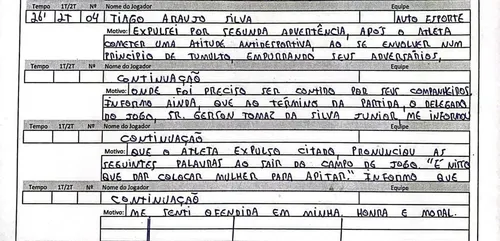 Tempo 1T/2T Nº Nome do Jogador Equipe
26' 2T 04 TIAGO ARAUJO SILVA AUTO ESPORTE
Motivo: EXPULSEI POR SEGUNDA ADVERTÊNCIA, APÓS O ATLETA
COMETER UMA ATITUDE ANTIDESPORTIVA, AO SE ENVOLVER NUM
PRINCÍPIO DE TUMULTO, EMPURRANDO SEUS ADVERSÁRIOS,
Tempo 1T/2T Nº Nome do Jogador Equipe
CONTINUAÇÃO
Motivo: ONDE FOI PRECISO SER CONTIDO POR SEUS COMPANHEIROS.
INFORMO AINDA, QUE AO TÉRMINO DA PARTIDA, O DELEGADO
DO JOGO, SR. GERSON TOMAZ DA SILVA JUNIOR, ME INFORMOU
Tempo 1T/2T Nº Nome do Jogador Equipe
CONTINUAÇÃO
Motivo: QUE O ATLETA EXPULSO CITADO, PRONUNCIOU AS
SEGUINTES PALAVRAS AO SAIR DO CAMPO DE JOGO "É NISTO
QUE DAR COLOCAR MULHER PARA APITAR." INFORMO QUE
Tempo 1T/2T Nº Nome do Jogador Equipe
CONTINUAÇÃO
Motivo: ME SENTI OFENDIDA EM MINHA HONRA E MORAL.